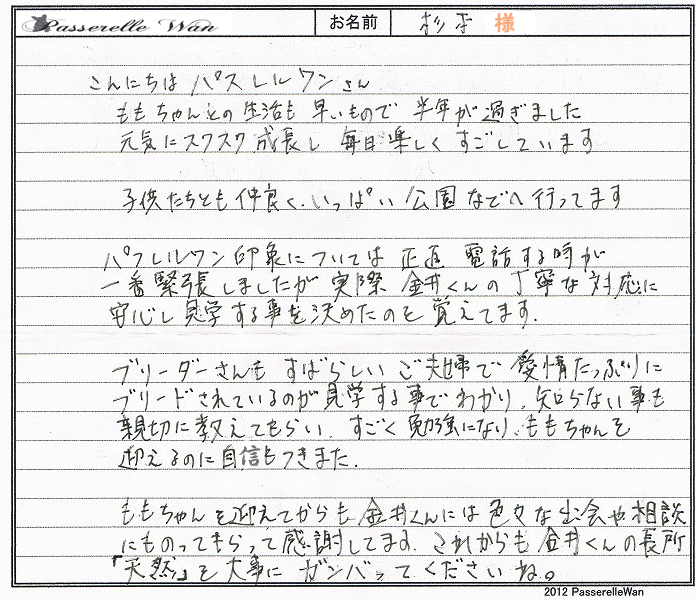 Passerelle Wan お名前 杉本 様
こんにちは パスレルワンさん
ももちゃんとの生活も 早いもので 半年が過ぎました
元気にスクスク成長し 毎日楽しくすごしています
子供たちとも仲良く、いっぱい 公園などへ行ってます
パスレルワン印象については 正直 電話する時が
一番緊張しましたが 実際 金井くんの丁寧な対応に
安心し見学する事を決めたのを覚えてます.
ブリーダーさんも すばらしい ご夫婦で 愛情たっぷりに
ブリードされているのが見学する事でわかり、知らない事も
親切に教えてもらい、すごく勉強になり、ももちゃんを
迎えるのに自信もつきまた.
ももちゃんを迎えてからも 金井くんには 色々な出会や相談
にものってもらって感謝してます. これからも 金井くんの長所
「天然」を大事に ガンバッてくださいね。
2012 PasserelleWan